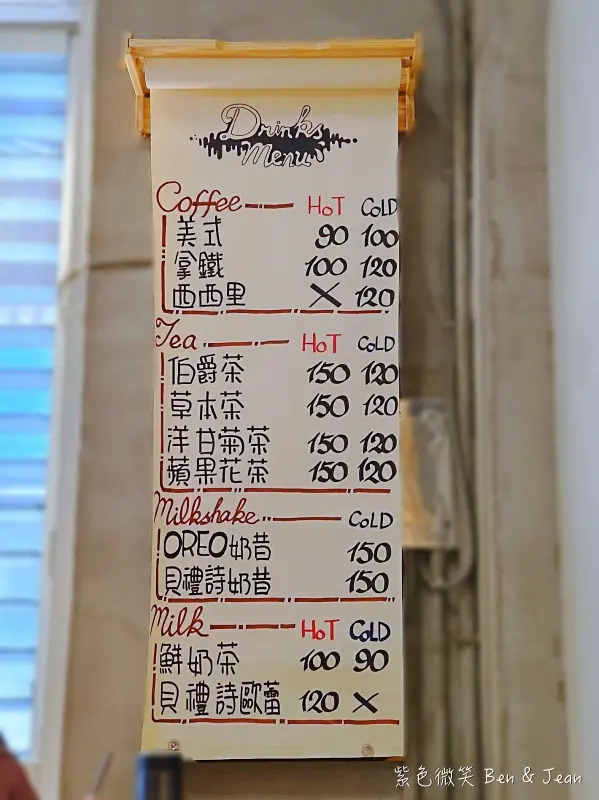 Drinks
Menu
Coffee HOT COLD
美式 90 100
拿鐵 100 120
西西里 X 120
Tea HOT COLD
伯爵茶 150 120
草本茶 150 120
洋甘菊茶 150 120
蘋果花茶 150 120
Milkshake COLD
OREO奶昔 150
貝禮詩奶昔 150
Milk HOT COLD
鮮奶茶 100 90
貝禮詩歐蕾 120 X
紫色微笑 Ben & Jean